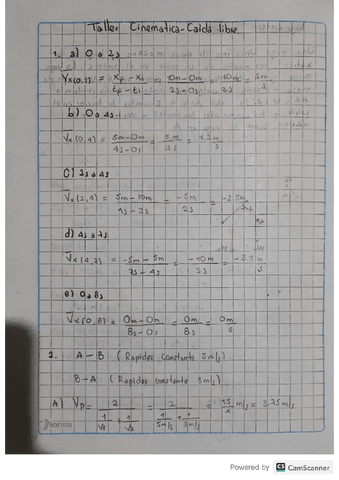 Taller Cinematica-Caida libre
1. a) 0 a 2s
Vx(0,2) = xf - xi / tf - ti = 10m-0m / 2s-0s = 10m / 2s = 5m / s
b) 0s 4s
Vx(0,4) = 5m-0m / 4s-0s = 5m
C) 2s a 4s
Vx(2,4) = 5m-10m / 4s-2s = -5m / 2s = -2.5m
d) 4s a 7s
Vx(4,7) = -5m-5m / 7s-4s = -10m / 3s = -3.3
e) 0 a 8s
Vx(0,8) = 0m-0m / 8s-0s = 0m / 8s = 0m / s
2. A-B (Rapidez constante 5m/s)
B-A (Rapidez constante 3m/s)
A) Vp = 2 / 1/V1 + 1/V2 = 2 / 1/5m/s + 1/3m/s = 15/4 m/s = 3.75m/s
Norma
Powered by CS CamScanner